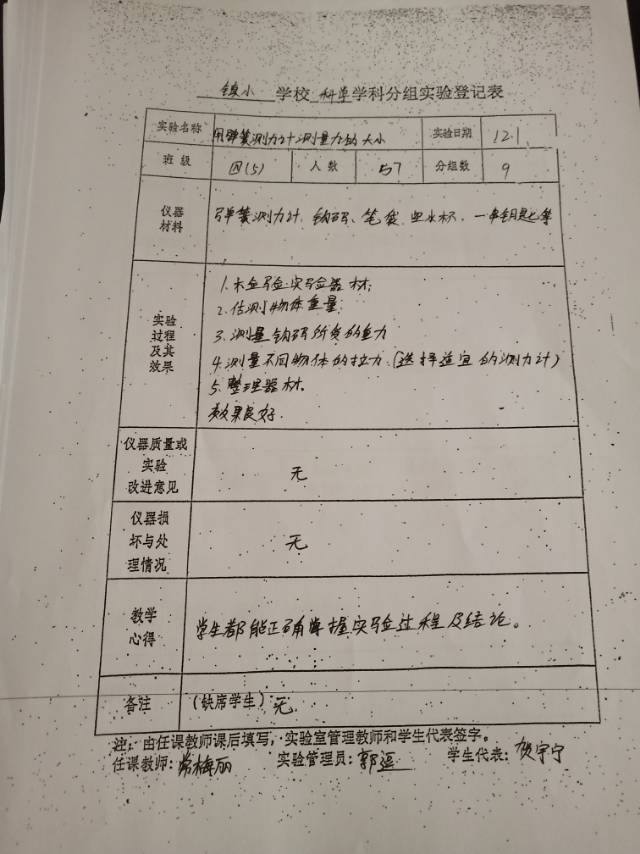 镇小 学校 科学 学科分组实验登记表
实验名称 用弹簧测力计测量力的大小 实验日期 12.1
班 级 四(5) 人 数 57 分组数 9
仪器
材料
弹簧测力计、钩码、笔袋、水杯、一串钥匙等
实验
过程
及其
效果
1.检查实验器材;
2.估测物体重量;
3.测量钩码所受的重力
4.测量不同物体的拉力(选择适宜的测力计)
5.整理器材.
效果良好.
仪器质量或
实验
改进意见
无
仪器损
坏与处
理情况
无
教学
心得
学生都能正确掌握实验过程及结论。
备注 (缺席学生) 无
注: 由任课教师课后填写,实验室管理教师和学生代表签字。
任课教师: 常梅丽 实验管理员: 郭 学生代表: 宇宁